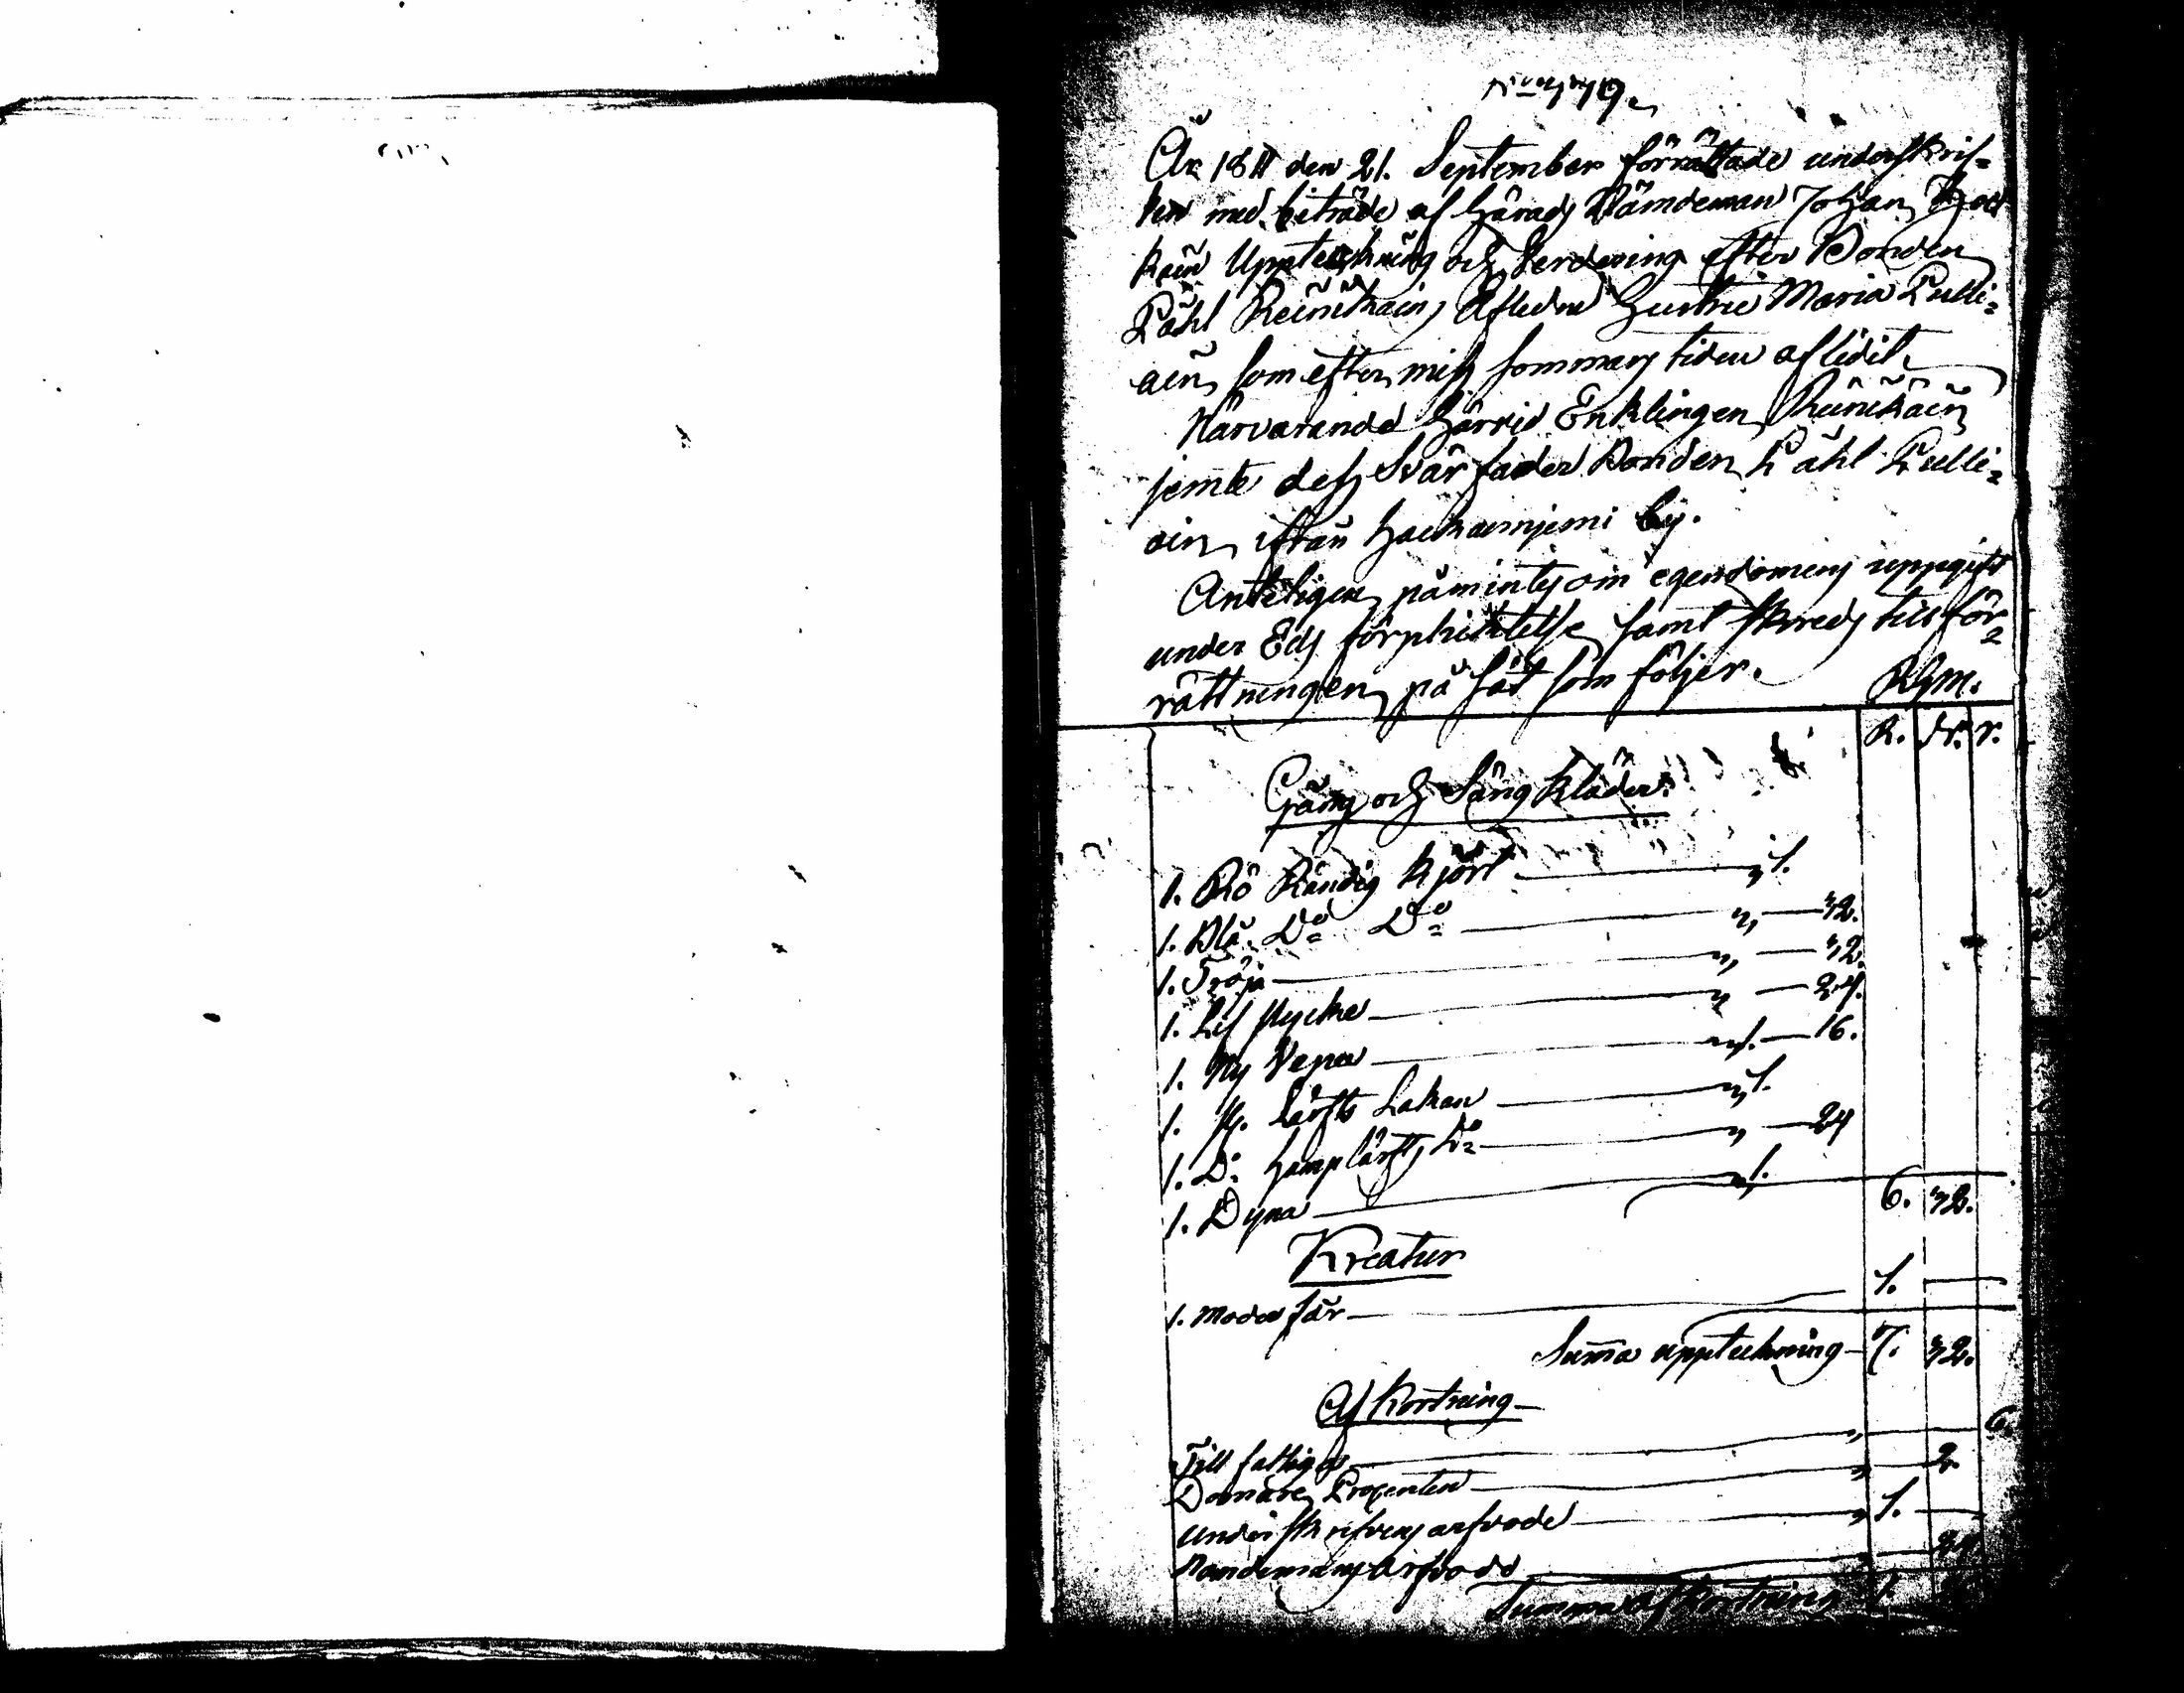 År 1811 den 21. September förrättade underskrif=
ven med biträde af härads Nämdeman Johan
kain Uppteckning och Verdering efter Bonden
Påhl Reinikain, Afledne hustru Maria Pulli=
ain, som efter mids sommars tiden aflidit.
Närvarande härvid Enklingen Reinikain
jemte dess Svär fader Bonden Påhl Pulli=
ain ifrån by.
Änteligen påmintes om egendomens uppgift
under Eds förplicktelse samt skreds till för=
rättningen på sätt som följer.
RGM.
R. sk. r.
Gång och Säng Kläder.
1. Rö Randig Kjort — " 1.
1. Blå Do Do — " — 32.
1. Tröja — " — 32.
1. Lif stycke — " — 24.
1. Ny Vepa — " 1. — 16.
1. St. lärfts Lakan — " 1.
1. Do hamp lärfts Do — " — 24
1. Dyna — " 1. 6. 32.
Kreatur
1. Moder får — 1. —
Suma uppteckning — 7. 32.
Af Kortning
Till fattiga — " — 6.
Domare Procenten — " — 2.
underskrifvens arfvode — " 1. —
Nämdemans Arfvode — " — 24.
Summa af kortning 1.